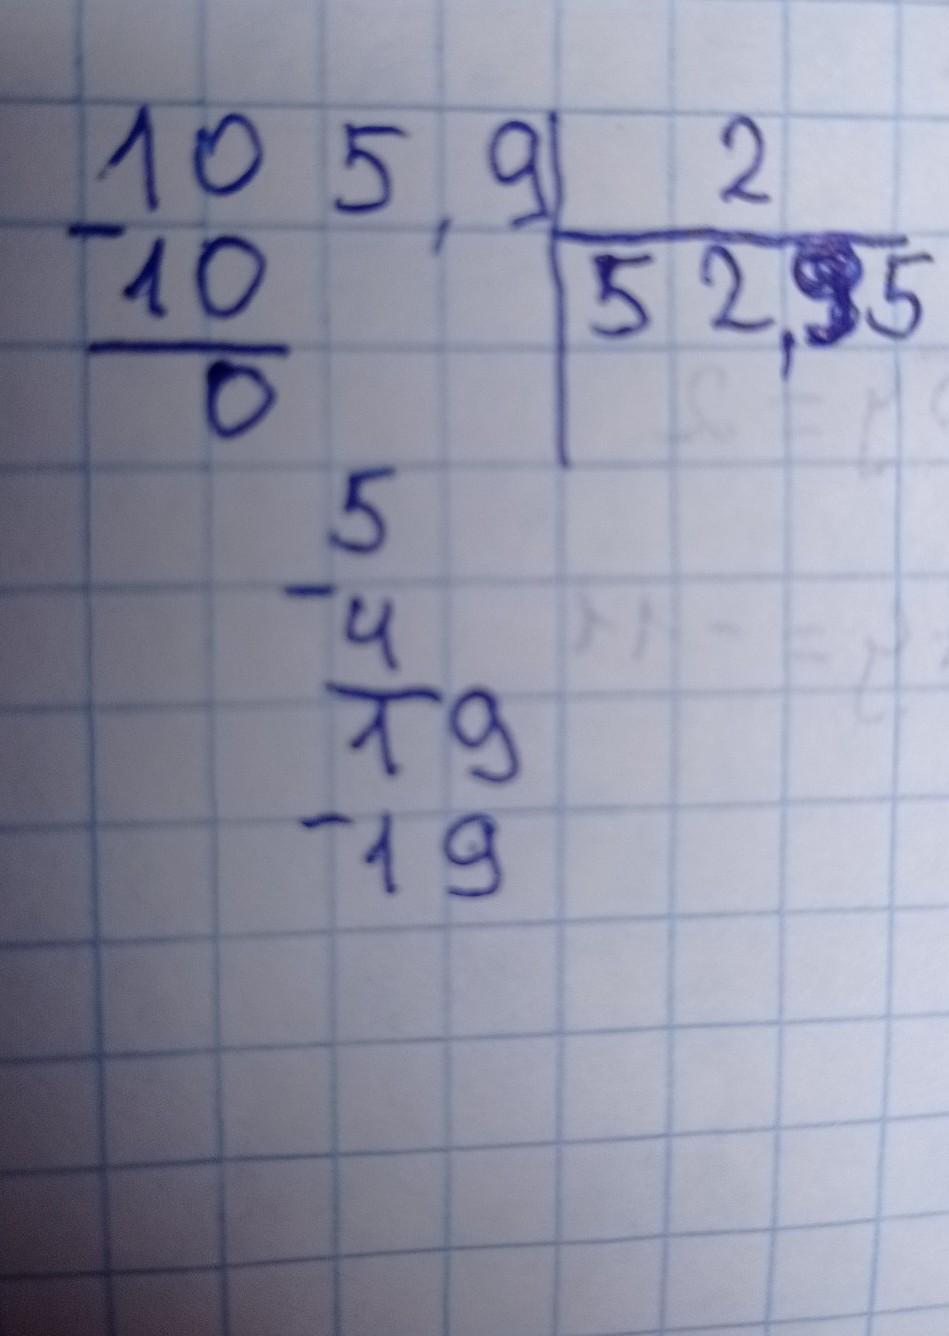 105,9 2
-10 52,95
0
5
-4
19
-19